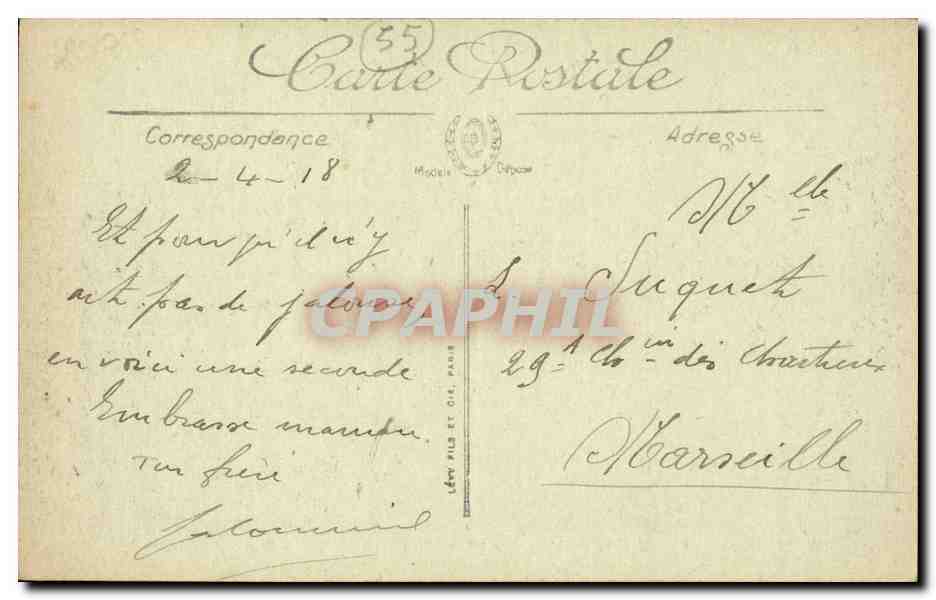 35
Carte Postale
Correspondance
Adresse
Modèle Déposé
2-4-18
Et pour qu'il n'y
ait pas de jalousie,
en voici une seconde
Embrasse maman.
Ton frère
Mlle
L Suquet
29 A Chin des Chartreux
Marseille
LÉVY FILS ET CIE, PARIS
CPAPHIL